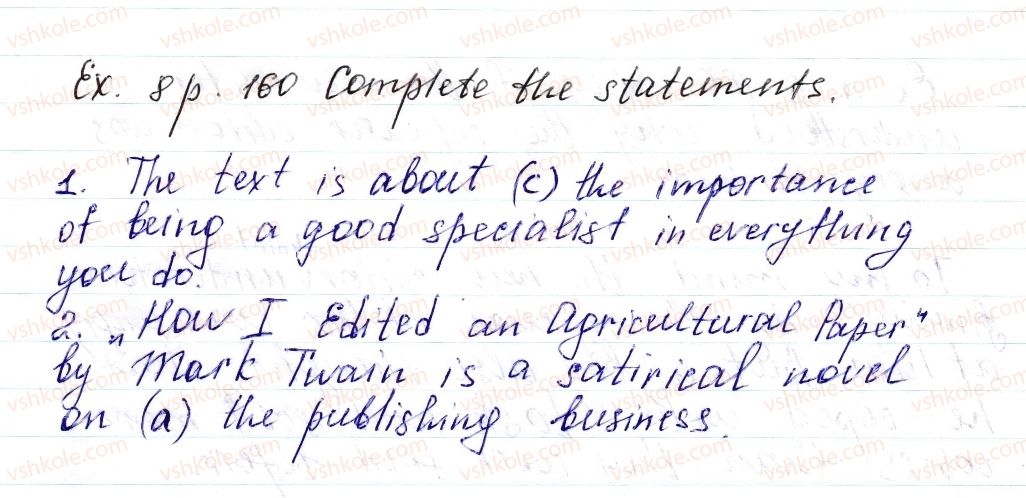 Ex. 8 p. 160 Complete the statements.
1. The text is about (c) the importance
of being a good specialist in everything
you do.
2. „How I Edited an Agricultural Paper"
by Mark Twain is a satirical novel
on (a) the publishing business.